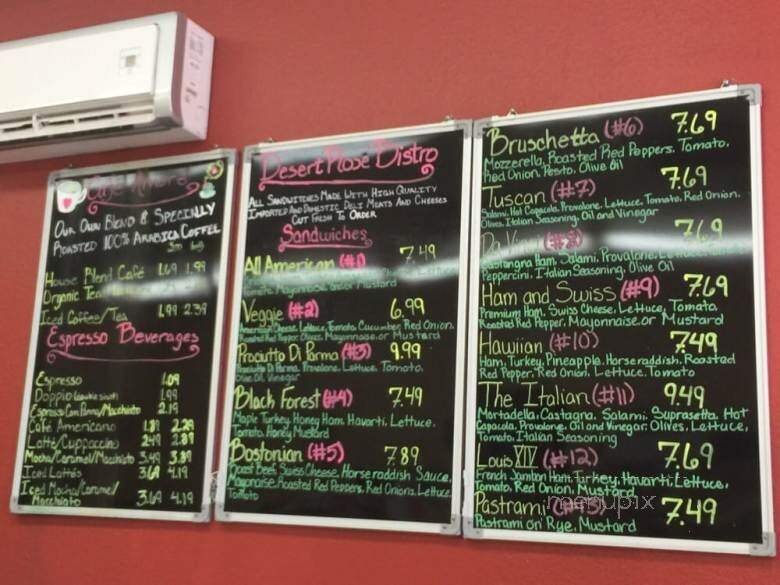 Our Own Blend & Specially
Roasted 100% Arabica Coffee
House Blend Café 1.69 1.99
Organic Tea
Iced Coffee/Tea 1.99 2.39
Espresso Beverages
Espresso 1.09
Doppio (double shot) 1.99
Espresso Con Panna/Macchiato 2.19
Café Americano 1.89 2.29
Latté/Cappuccino 2.49 2.89
Mocha/Caramel/Macchiato 3.49 3.89
Iced Lattés 3.69 4.19
Iced Mocha/Caramel/
Macchiato 3.69 4.19
Desert Rose Bistro
All Sandwiches Made With High Quality
Imported and Domestic Deli Meats and Cheeses
Cut Fresh To Order
Sandwiches
All American (#1) 7.49
Tomato, Mayonnaise and/or Mustard
Veggie (#2) 6.99
American Cheese, Lettuce, Tomato, Cucumber, Red Onion,
Roasted Red Pepper, Olives, Mayonnaise or Mustard
Prociutto Di Parma (#3) 9.99
Prociutto Di Parma, Provalone, Lettuce, Tomato,
Olive Oil, Vinegar
Black Forest (#4) 7.49
Maple Turkey, Honey Ham, Havarti, Lettuce,
Tomato, Honey Mustard
Bostonian (#5) 7.89
Roast Beef, Swiss Cheese, Horseraddish Sauce,
Mayonaise, Roasted Red Peppers, Red Onions, Lettuce
Tomato
Bruschetta (#6) 7.69
Mozzerella, Roasted Red Peppers, Tomato,
Red Onion, Pesto, Olive Oil
Tuscan (#7) 7.69
Salami, Hot Capacola, Provalone, Lettuce, Tomato, Red Onion,
Olives, Italian Seasoning, Oil and Vinegar
Da Vinci (#8) 7.69
Castangna Ham, Salami, Provalone,
Peppercini, Italian Seasoning, Olive Oil
Ham and Swiss (#9) 7.69
Premium Ham, Swiss Cheese, Lettuce, Tomato,
Roasted Red Pepper, Mayonnaise or Mustard
Hawiian (#10) 7.49
Ham, Turkey, Pineapple, Horseraddish, Roasted
Red Pepper, Red Onion, Lettuce, Tomato
The Italian (#11) 9.49
Mortadella, Castagna, Salami, Suprasetta, Hot
Capacola, Provalone, Oil and Vinegar, Olives, Lettuce,
Tomato, Italian Seasoning
Louis XIV (#12) 7.69
French Jambon Ham, Turkey, Havarti, Lettuce,
Tomato, Red Onion, Mustard
Pastrami (#13) 7.49
Pastrami on Rye, Mustard
menupix